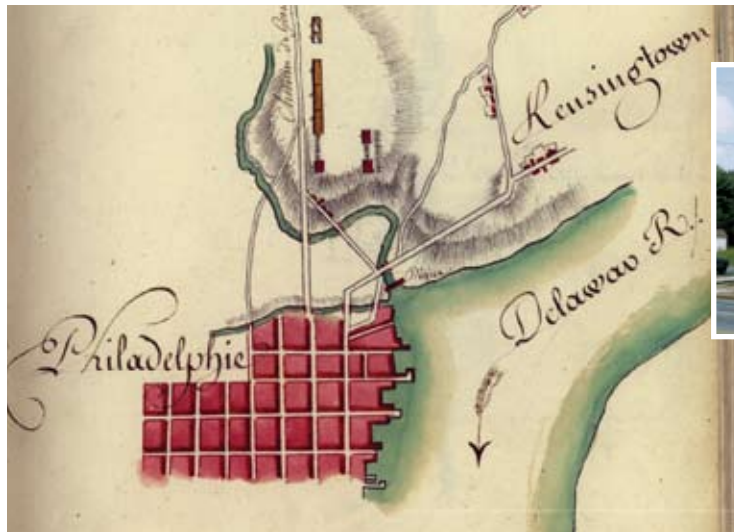 Kensingtown
Delawar R.
Philadelphie